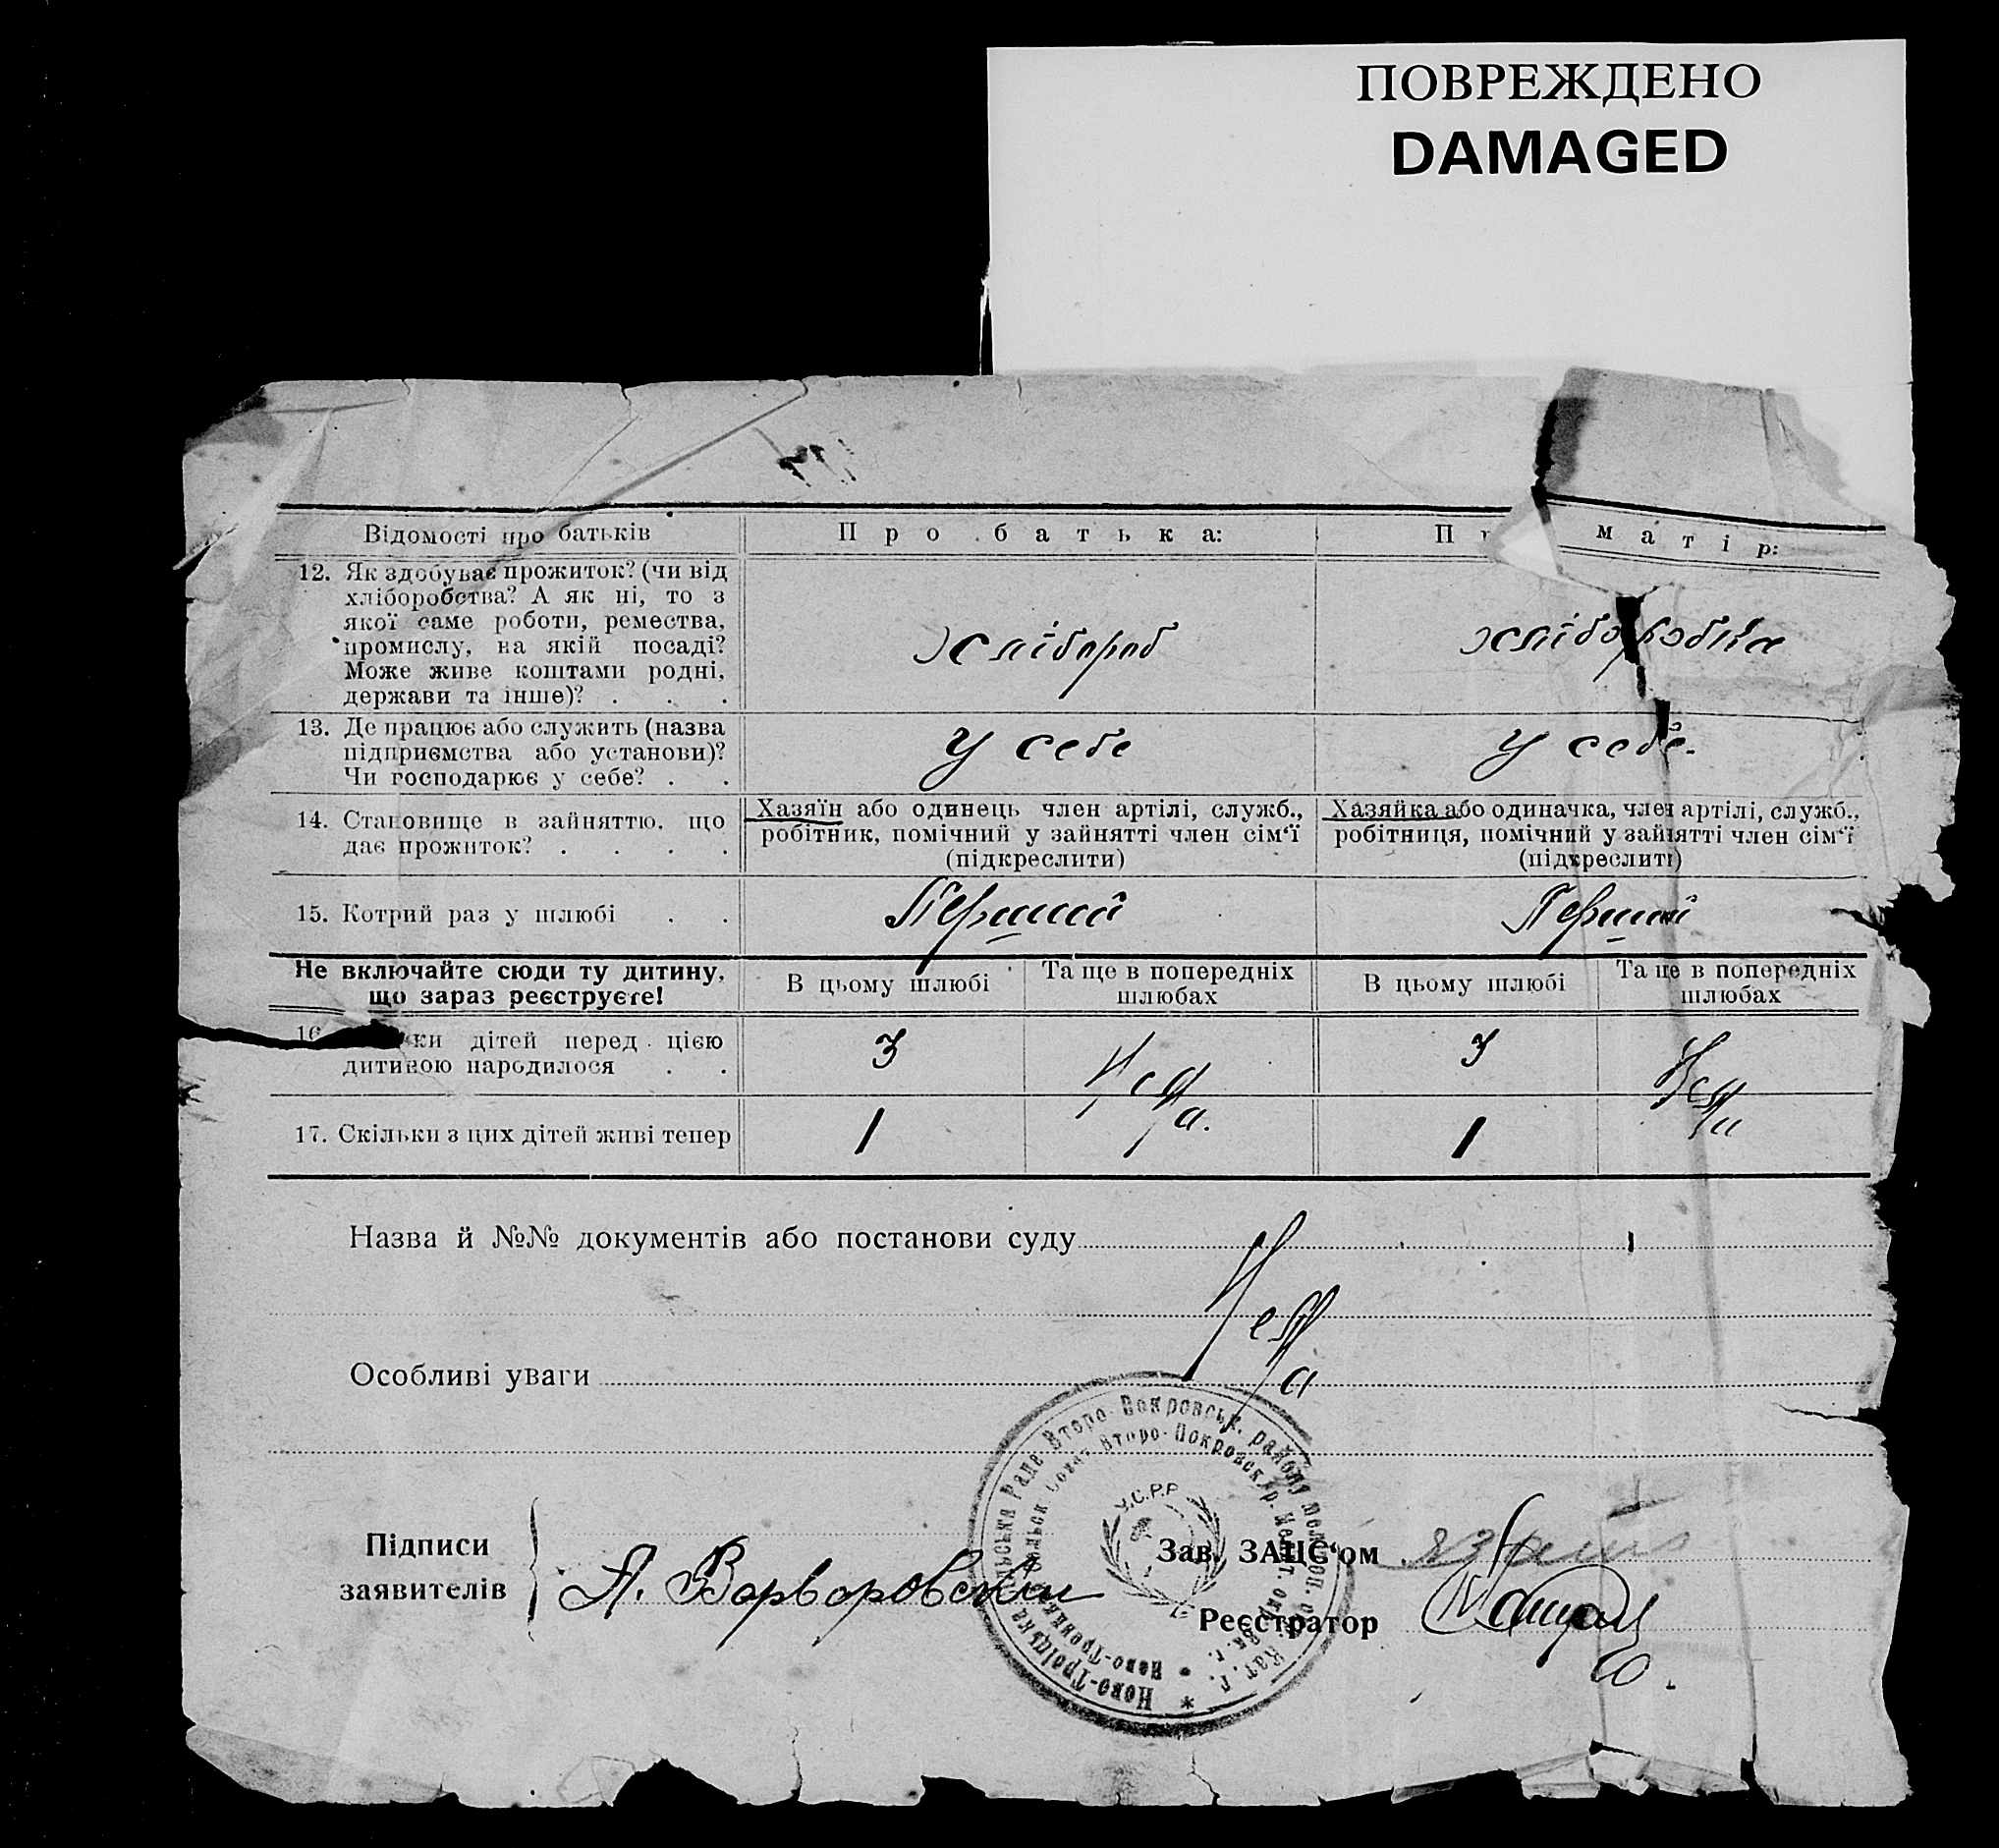 ПОВРЕЖДЕНО
DAMAGED
Відомості про батьків
Про батька:
матір:
12. Як здобуває прожиток? (чи від
хліборобства? А як ні, то з
якої саме роботи, ремества,
промислу, на якій посаді?
Може живе коштами родні,
держави та інше)? . . .
хлібороб
хліборобка
13. Де працює або служить (назва
підприємства або установи)?
Чи господарює у себе? . .
у себе
у себе.
14. Становище в зайняттю, що
дає прожиток? . . . .
Хазяїн або одинець член артілі, служб.,
робітник, помічний у зайнятті член сім‘ї
(підкреслити)
Хазяйка або одиначка, член артілі, служб.,
робітниця, помічний у зайнятті член сім‘ї
(підкреслити)
15. Котрий раз у шлюбі . .
Перший
Перший
Не включайте сюди ту дитину,
що зараз реєструєте!
В цьому шлюбі
Та ще в попередніх
шлюбах
В цьому шлюбі
Та ще в попередніх
шлюбах
16 ки дітей перед цією
дитиною народилося . .
3
Нема.
3
Нема
17. Скільки з цих дітей живі тепер
1
1
Назва й №№ документів або постанови суду
Нема
Особливі уваги
Підписи
заявителів
А. Варваровский
Зав. ЗАЦС‘ом
Реєстратор
Ново-Троїцька Сільська Рада Второ-Покровськ. району мелоп. окр. Кат. Г.
У.С.Р.Р.